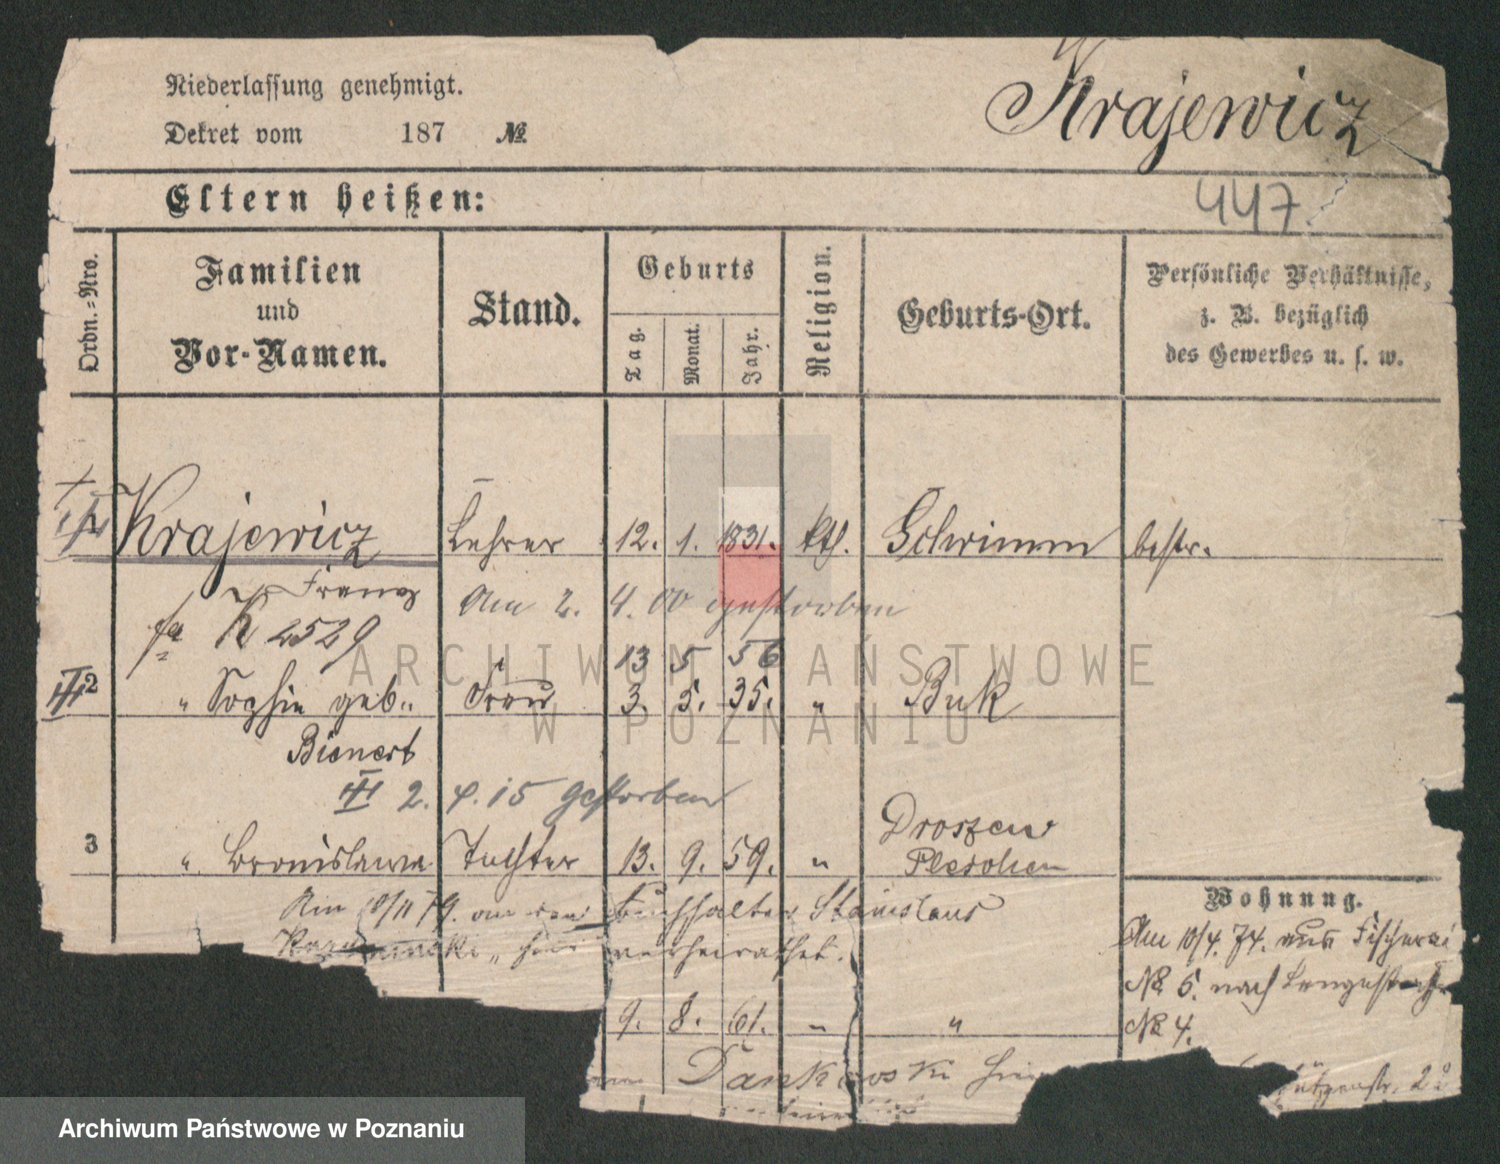 Niederlassung genehmigt.
Dekret vom 187 №
Krajewicz
447
Eltern heißen:
Ordn.-Nro.
Familien und Vor-Namen.
Stand.
Geburts
Tag. Monat. Jahr.
Religion.
Geburts-Ort.
Persönliche Verhältnisse,
z. B. bezüglich
des Gewerbes u. s. w.
Krajewicz Lehrer 12. 1. 1831. kth. Schrimm bestr.
Franz
Am 2. 4. 00 gestorben
K 2529
13 5 56
2 " Sophie geb. Frau 3. 5. 35. " Buk
Bienert
2. 4. 15 gestorben
Droszew
3 " Bronislawa Tochter 13. 9. 59. " Pleschen
Am 10/11 79. an den Buchhalter Stanislaus
hier verheirathet.
Wohnung.
Am 10/4. 74. aus Fischerei
№ 5. nach Langestraße
№ 4.
9. 8. 61. " "
Dankowski hier
Schützenstr.
ARCHIWUM PAŃSTWOWE
W POZNANIU
Archiwum Państwowe w Poznaniu